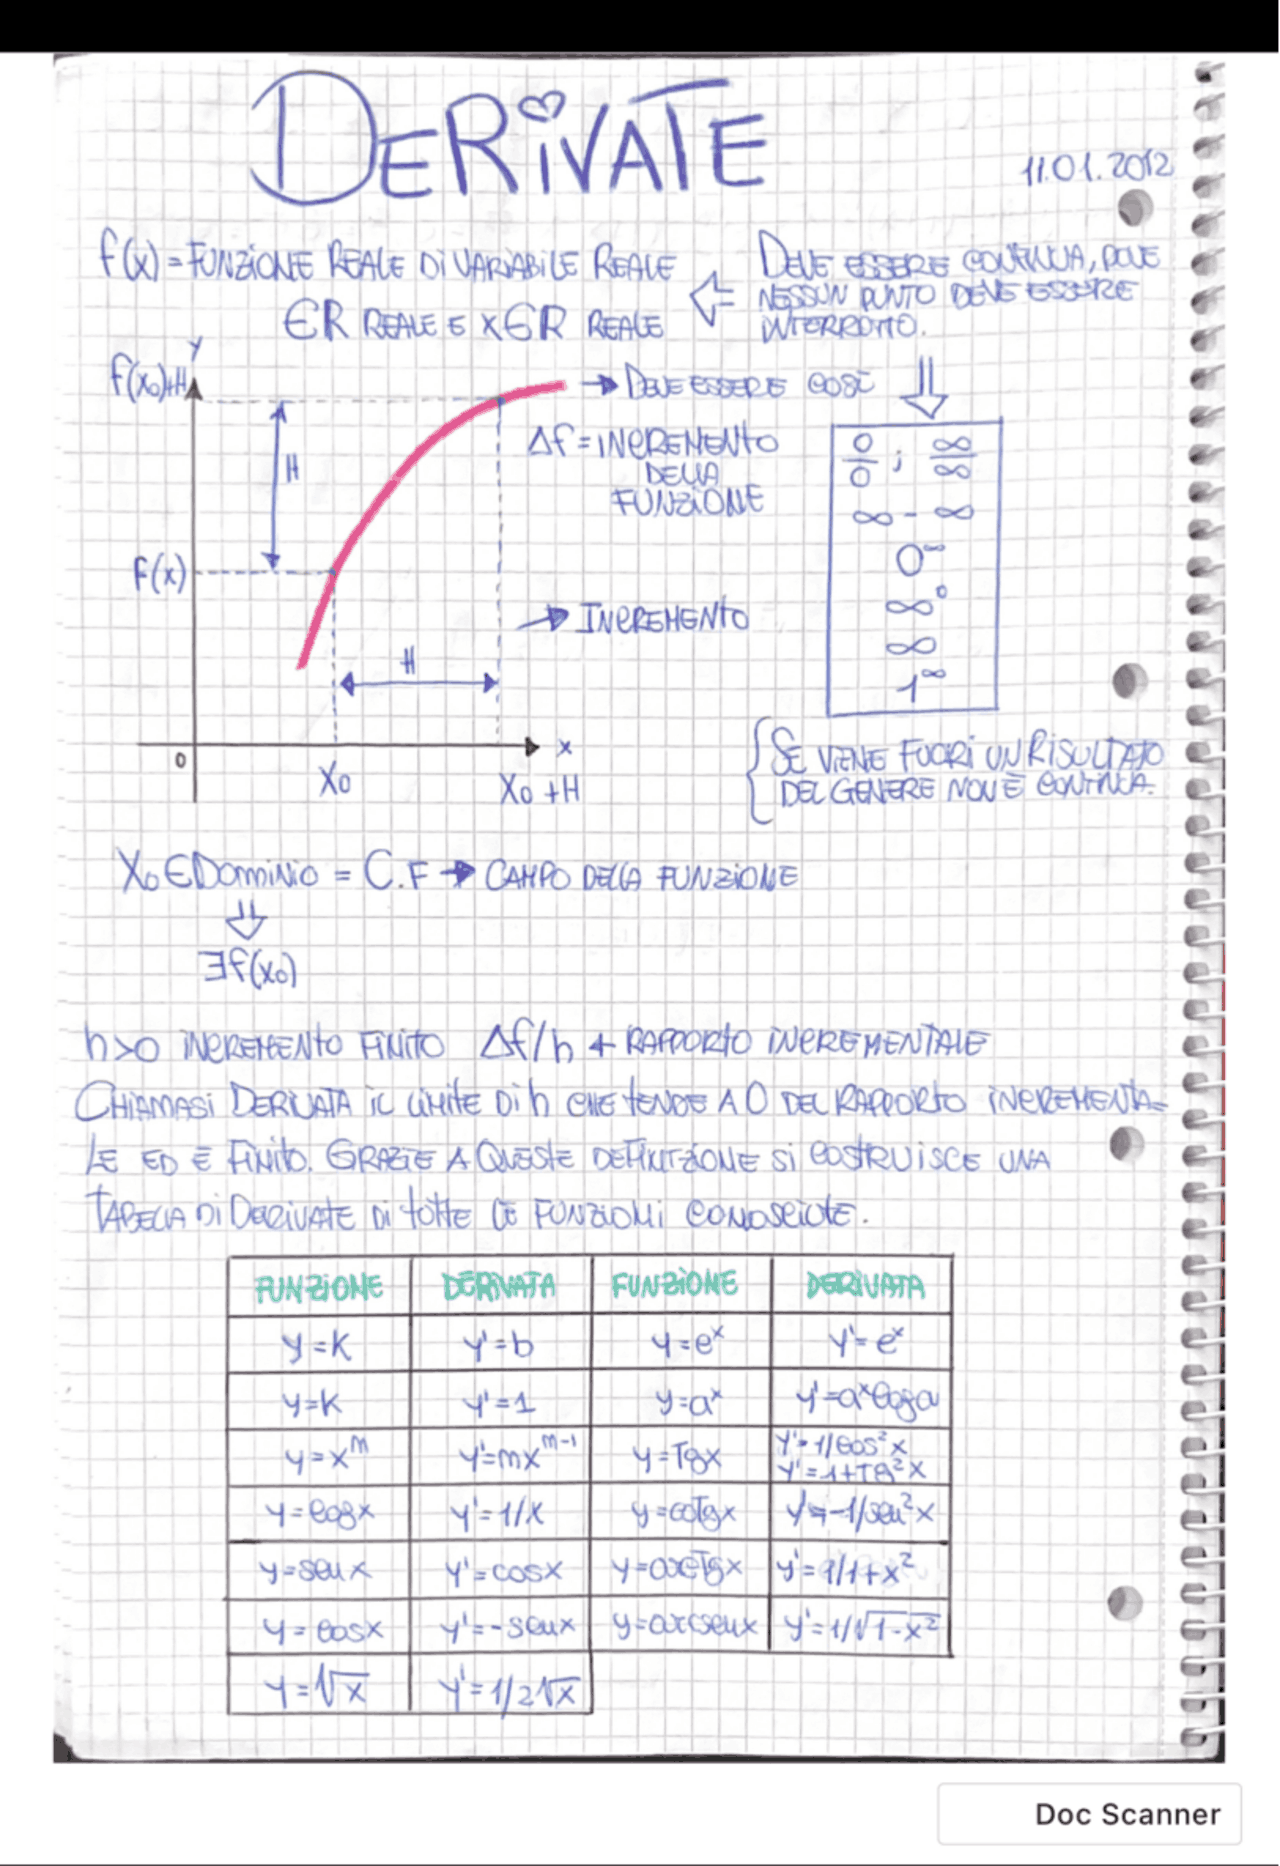 DERiVATE
11.01.2012
f(x) = FUNZiONE REALE Di VARiABiLE REALE
∈R REALE E X∈R REALE
DEVE ESSERE CONTINUA, DOVE
NESSUN PUNTO DEVE ESSERE
INTERROTTO.
Y
f(x₀)+H
→ DEVE ESSERE COSÌ
H
Δf = iNCREMENTO
DELLA
FUNZiONE
0/0 ; ∞/∞
∞ - ∞
0^∞
∞⁰
∞
1^∞
F(x)
→ INCREMENTO
H
0
x
X₀
X₀ + H
SE VIENE FUORi UN RiSULTATO
DEL GENERE NON È CONTINUA.
X₀ ∈ DOMiNiO = C.F → CAMPO DELLA FUNZiONE
⇓
∃f(x₀)
h>0 iNCREMENTO FiNiTO Δf/h → RAPPORTO iNCREMENTALE
CHiAMASi DERiVATA iL LiMiTE Di h CHE TENDE A 0 DEL RAPPORTO iNCREMENTA=
LE ED È FiNiTO. GRAZIE A QUESTE DEFiNiZiONE Si COSTRUiSCE UNA
TABELLA Di DERiVATE Di TUTTE LE FUNZiONi CONOSCIUTE.
FUNZiONE DERiVATA FUNZiONE DERiVATA
y = K y' = b y = eˣ y' = eˣ
y = K y' = 1 y = aˣ y' = aˣ loga
y = xᵐ y' = mxᵐ⁻¹ y = Tgx y' = 1/cos²x
y' = 1+Tg²x
y = logx y' = 1/x y = coTgx y' = -1/sen²x
y = senx y' = cosx y = arcTgx y' = 1/1+x²
y = cosx y' = -senx y = arcsenx y' = 1/√1-x²
y = √x y' = 1/2√x
Doc Scanner